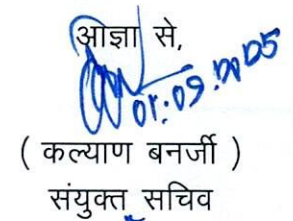 आज्ञा से,
01.09.2005
( कल्याण बनर्जी )
संयुक्त सचिव